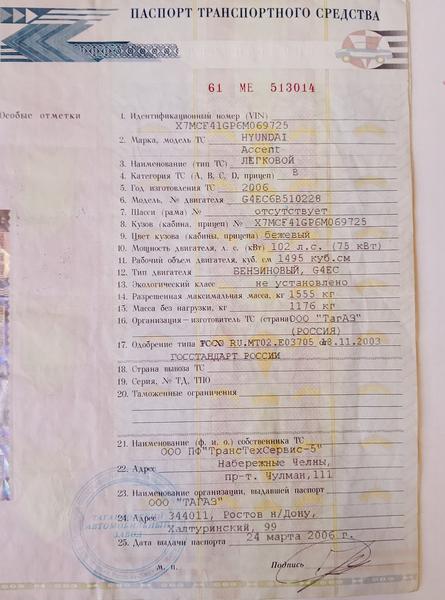 ПАСПОРТ ТРАНСПОРТНОГО СРЕДСТВА
61 МЕ 513014
Особые отметки
1. Идентификационный номер (VIN)
X7MCF41GP6M069725
2. Марка, модель ТС HYUNDAI
Accent
3. Наименование (тип ТС) ЛЕГКОВОЙ
4. Категория ТС (А, В, С, D, прицеп) В
5. Год изготовления ТС 2006
6. Модель, № двигателя G4EC6B510228
7. Шасси (рама) № отсутствует
8. Кузов (кабина, прицеп) № X7MCF41GP6M069725
9. Цвет кузова (кабины, прицепа) бежевый
10. Мощность двигателя, л. с. (кВт) 102 л.с. (75 кВт)
11. Рабочий объем двигателя, куб. см 1495 куб.см
12. Тип двигателя БЕНЗИНОВЫЙ, G4EC
13. Экологический класс не установлено
14. Разрешенная максимальная масса, кг 1555 кг
15. Масса без нагрузки, кг 1176 кг
16. Организация—изготовитель ТС (страна) ООО "ТагАЗ"
(РОССИЯ)
17. Одобрение типа ТС № РОСС RU.МТ02.Е03705 от 18.11.2003
ГОССТАНДАРТ РОССИИ
18. Страна вывоза ТС
19. Серия, № ТД, ТПО
20. Таможенные ограничения
21. Наименование (ф. и. о.) собственника ТС
ООО ПФ"ТрансТехСервис-5"
22. Адрес Набережные Челны,
пр-т. Чулман,111
23. Наименование организации, выдавшей паспорт
ООО "ТАГАЗ"
24. Адрес 344011, Ростов н/Дону,
Халтуринский, 99
25. Дата выдачи паспорта 24 марта 2006 г.
М. П.
Подпись
ТАГАНРОГСКИЙ
АВТОМОБИЛЬНЫЙ
ЗАВОД